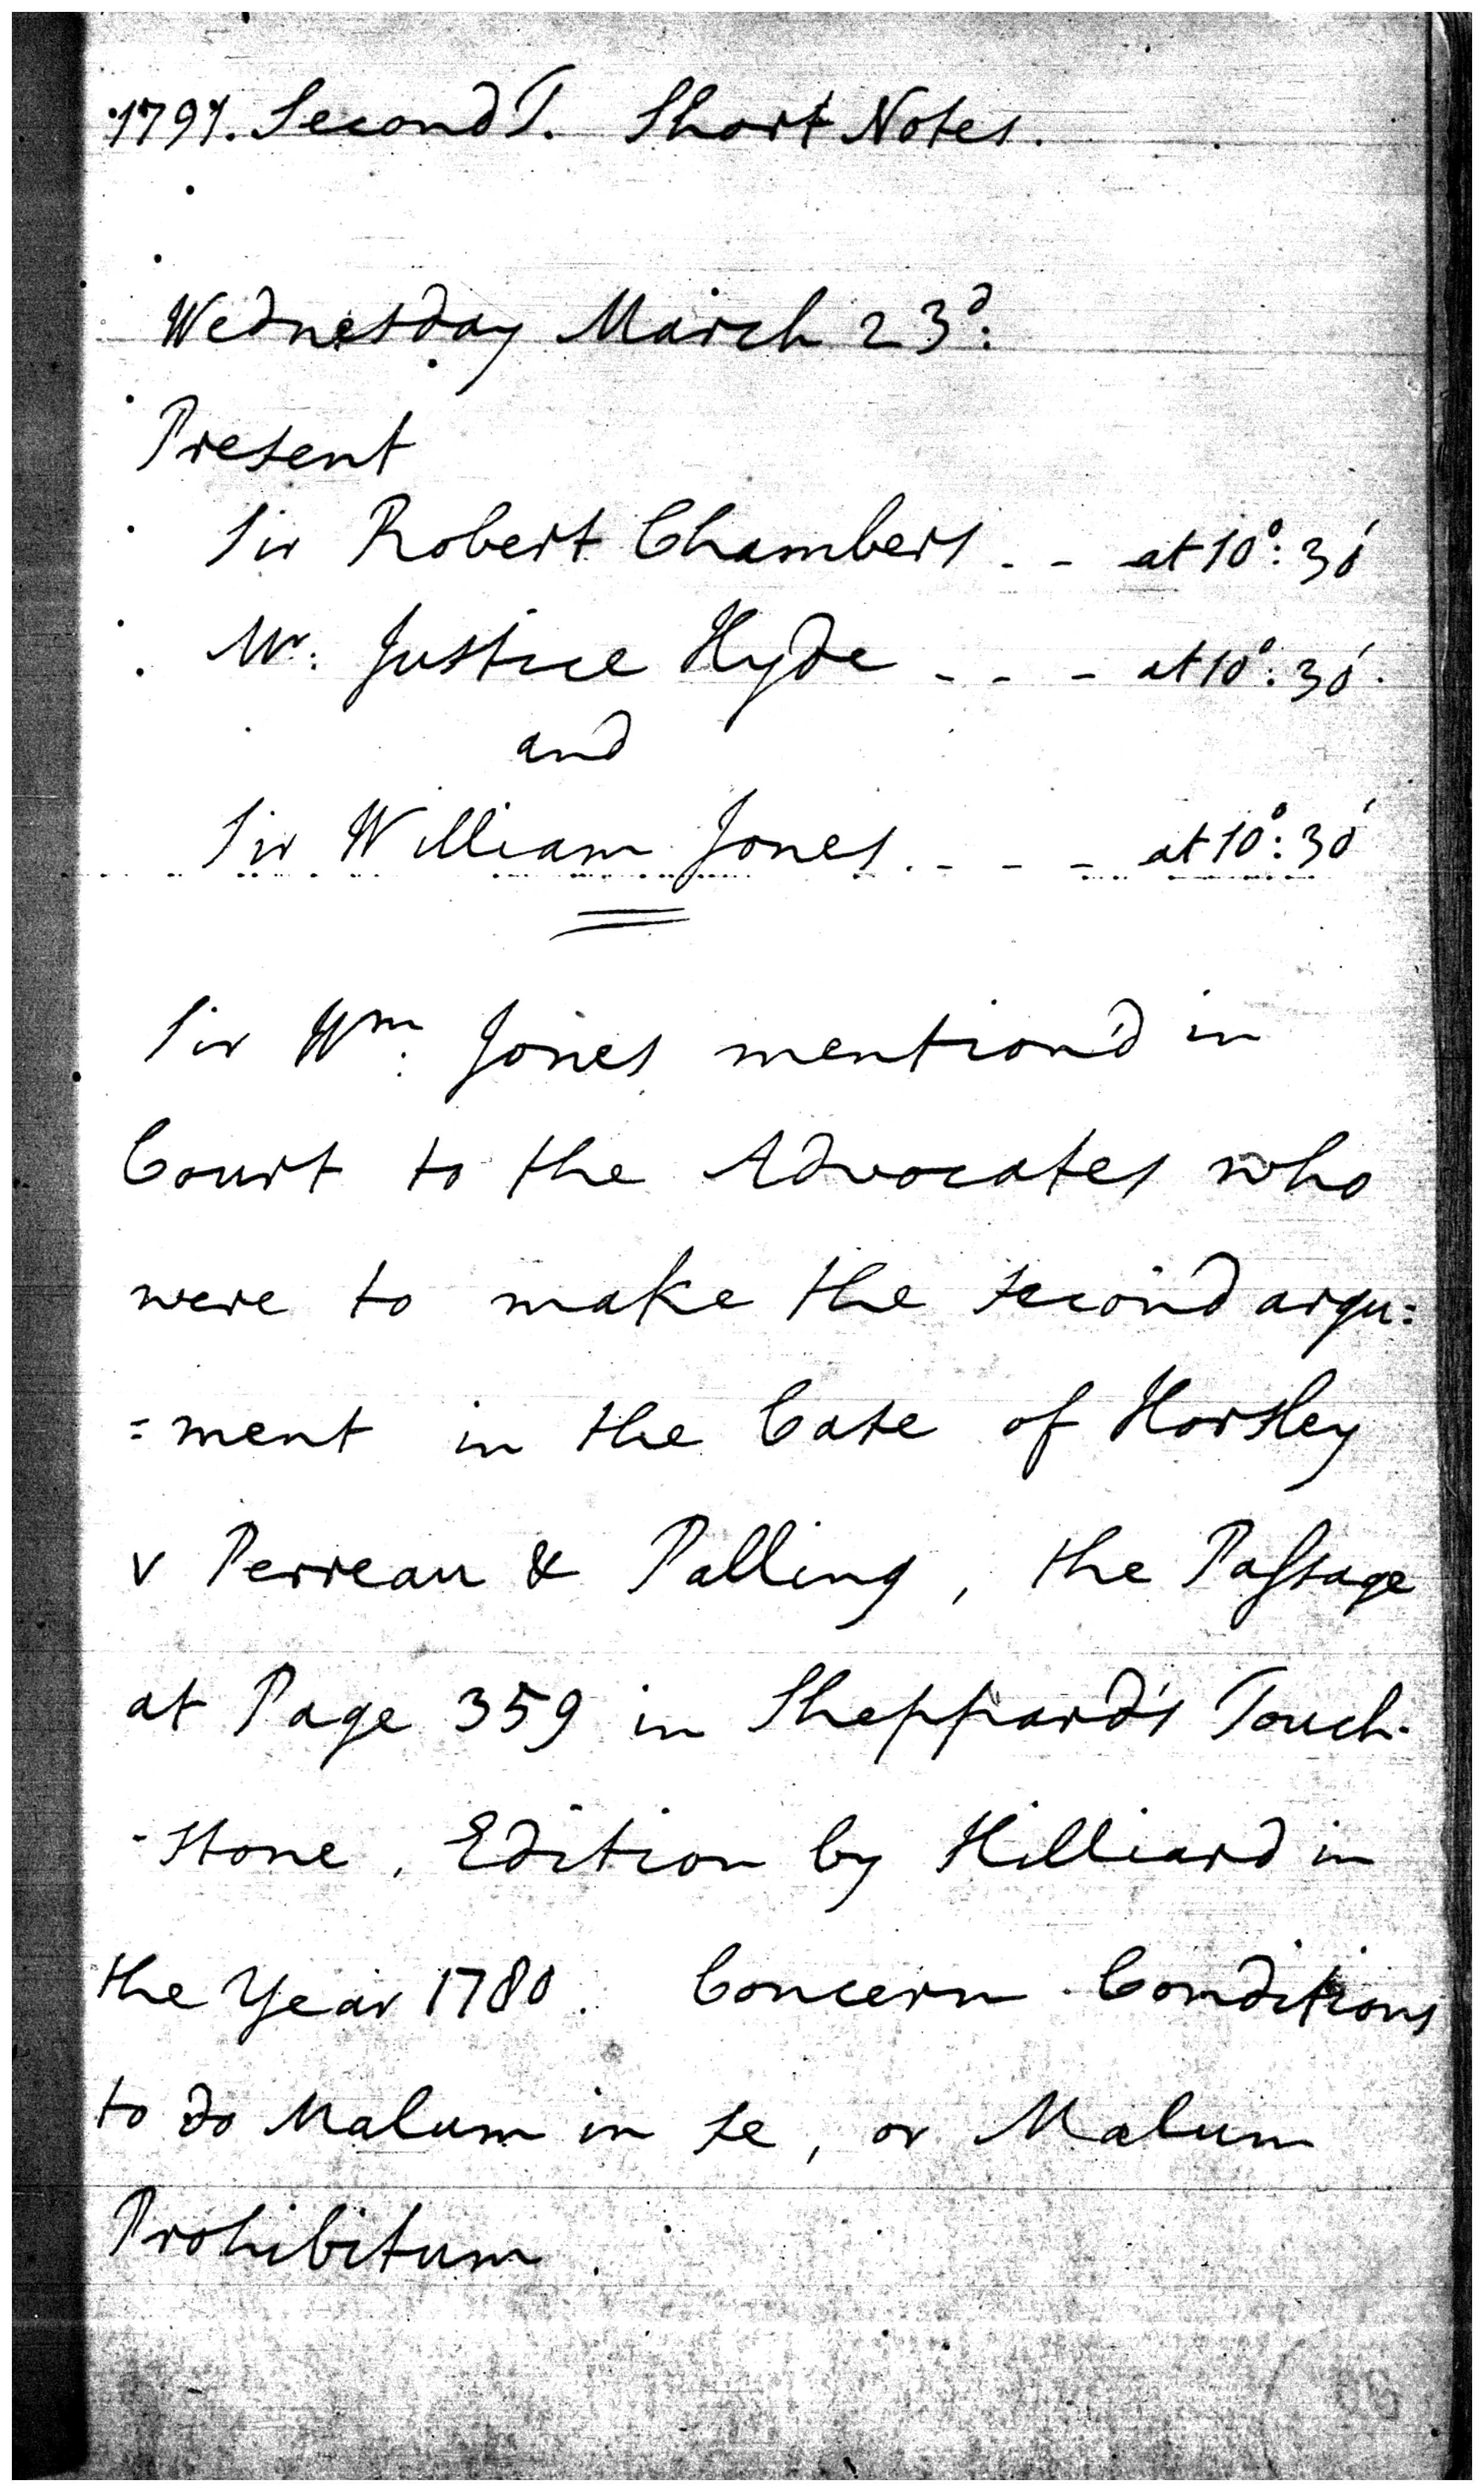 1791. Second T. Short Notes.
Wednesday March 23d:
Present
Sir Robert Chambers - - at 10°: 30'
Mr: Justice Hyde - - - at 10°: 30'
and
Sir William Jones - - - at 10°: 30'
Sir Wm: Jones mention'd in
Court to the Advocates who
were to make the second argu:
=ment in the Case of Horsley
v Perreau & Palling, the Paſsage
at Page 359 in Sheppard's Touch-
-stone, Edition by Hilliard in
the Year 1780. Concern Conditions
to do Malum in se, or Malum
Prohibitum.